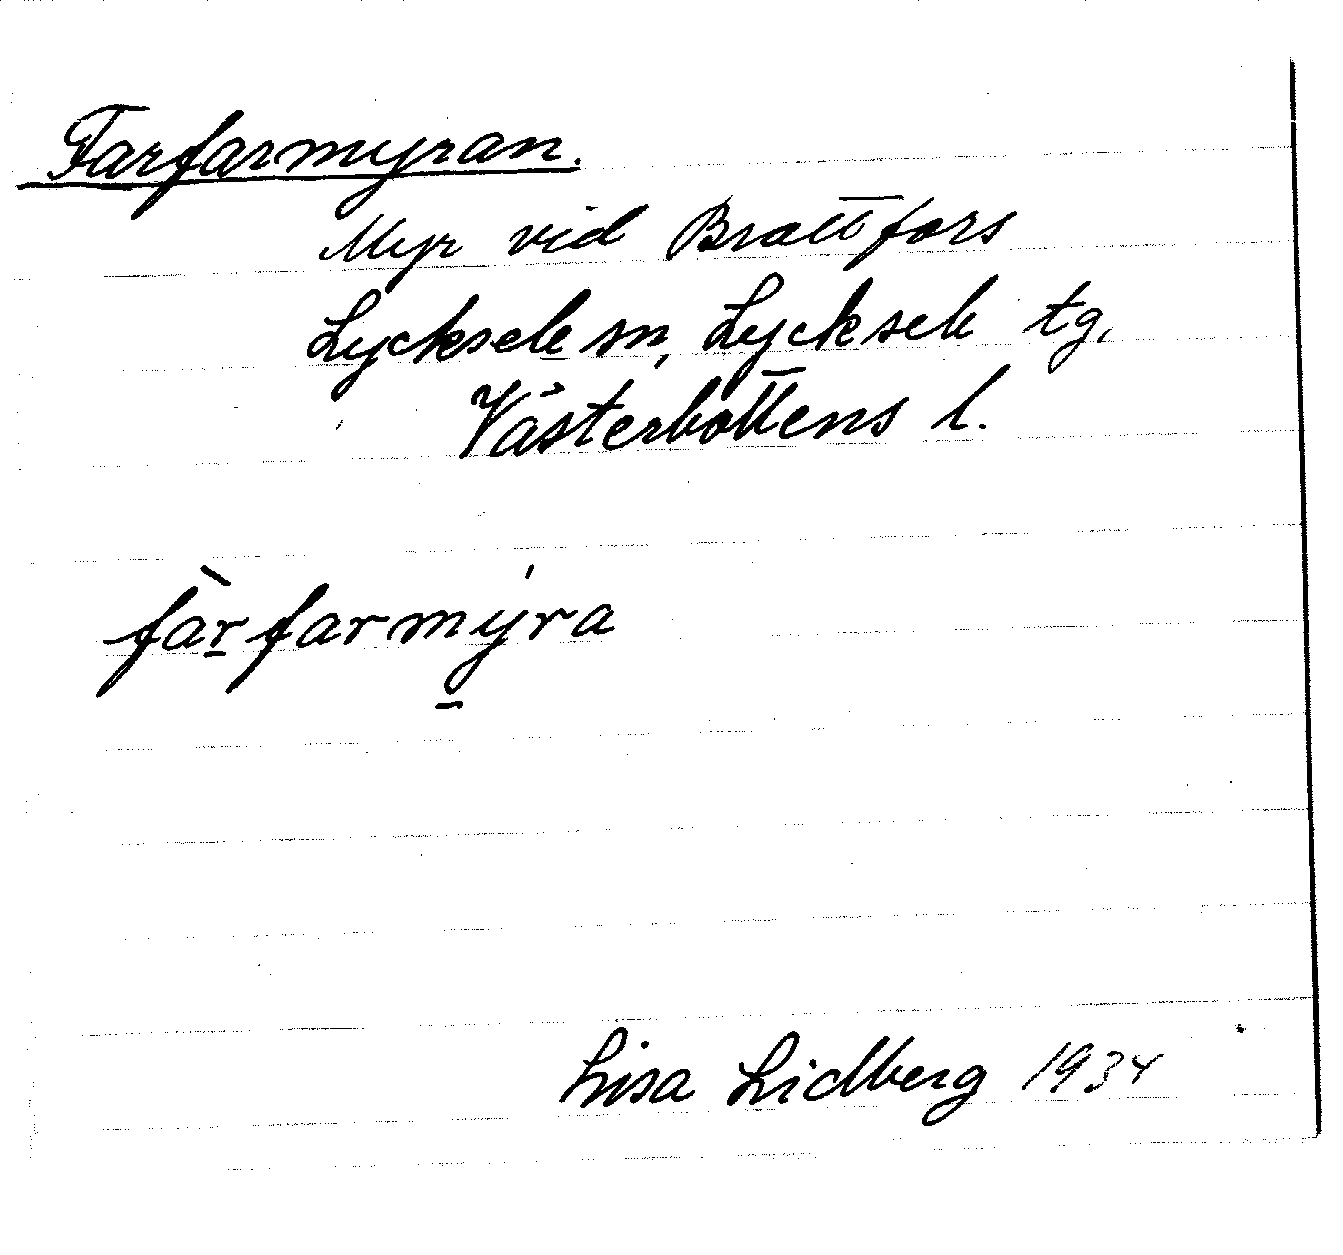 Farfarmyran.
Myr vid Brattfors
Lycksele sn, Lycksele tg,
Västerbottens l.
fàr̲farmý̲ra
Lisa Lidberg 1934